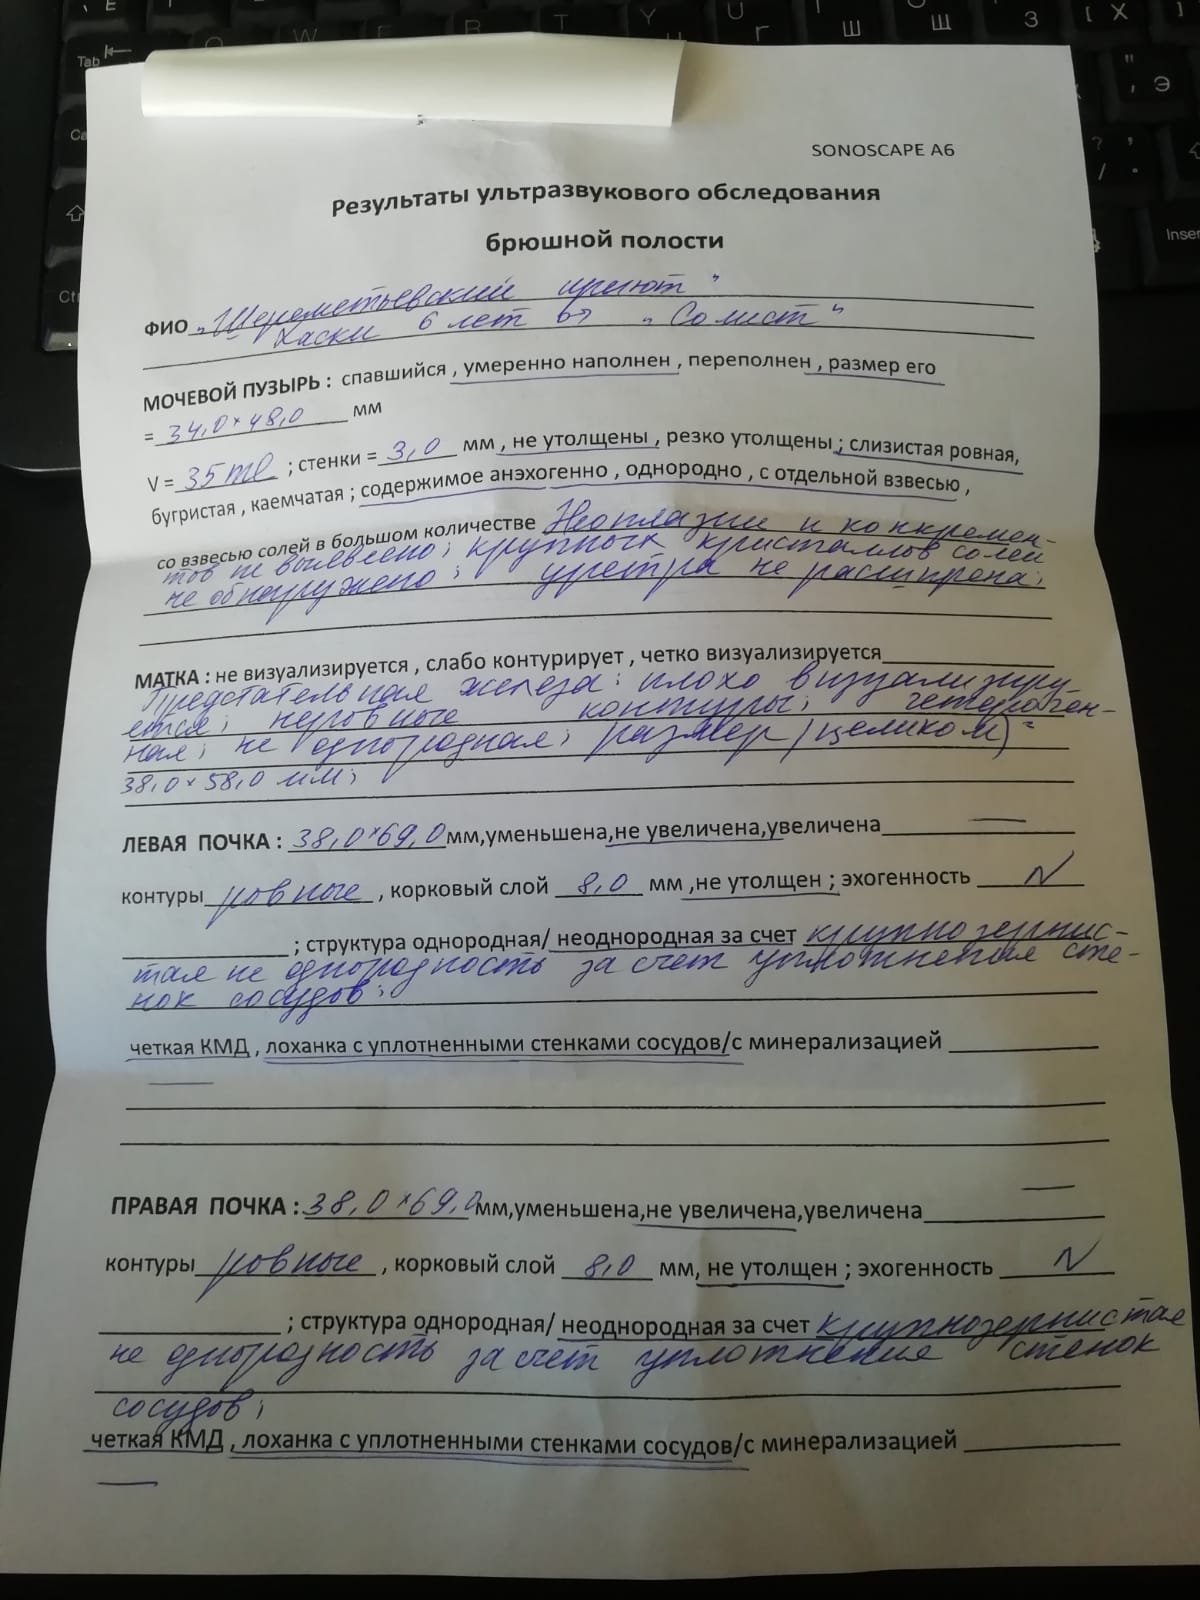 SONOSCAPE A6
Результаты ультразвукового обследования
брюшной полости
ФИО „Шереметьевский приют"
Хаски 6 лет „Солист"
МОЧЕВОЙ ПУЗЫРЬ : спавшийся , умеренно наполнен , переполнен , размер его
= 34,0 × 48,0 мм
V = 35 ml ; стенки = 3,0 мм , не утолщены , резко утолщены ; слизистая ровная,
бугристая , каемчатая ; содержимое анэхогенно , однородно , с отдельной взвесью ,
со взвесью солей в большом количестве Неоплазии и конкремен-
тов не выявлено; крупных кристаллов солей
не обнаружено; уретра не расширена;
МАТКА : не визуализируется , слабо контурирует , четко визуализируется
Предстательная железа: плохо визуализиру-
ется; неровные контуры; гетероген-
ная; не однородная; размер (целиком) =
38,0 × 58,0 мм;
ЛЕВАЯ ПОЧКА : 38,0 × 69,0 мм,уменьшена,не увеличена,увеличена —
контуры ровные , корковый слой 8,0 мм ,не утолщен ; эхогенность N
; структура однородная/ неоднородная за счет крупнозернис-
тая не однородность за счет уплотнения сте-
нок сосудов;
четкая КМД , лоханка с уплотненными стенками сосудов/с минерализацией
—
ПРАВАЯ ПОЧКА : 38,0 × 69,0 мм,уменьшена,не увеличена,увеличена —
контуры ровные , корковый слой 8,0 мм, не утолщен ; эхогенность N
; структура однородная/ неоднородная за счет крупнозернистая
не однородность за счет уплотнение стенок
сосудов;
четкая КМД , лоханка с уплотненными стенками сосудов/с минерализацией
—